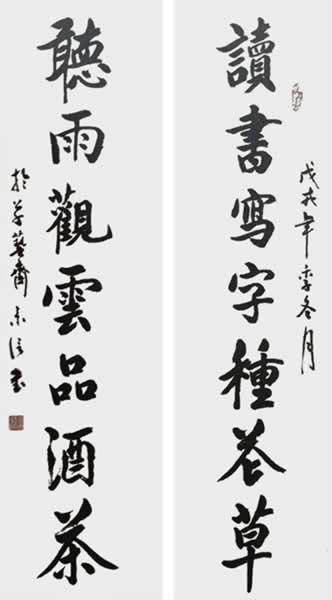 戊戌年季冬月
讀書寫字種花草
聽雨觀雲品酒茶
於藝齋書